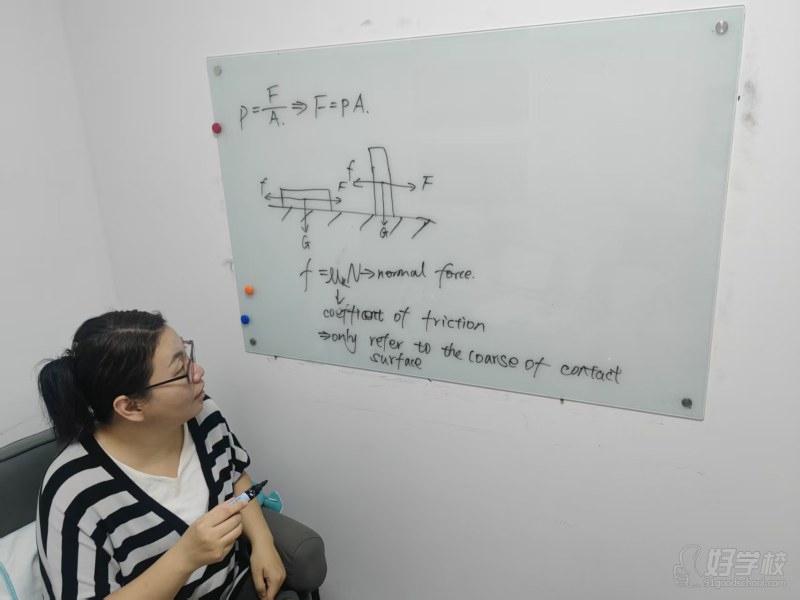 P = F/A. ⇒ F = PA.
f F G
f F G
f = μN → normal force.
↓
coefficient of friction
⇒ only refer to the coarse of contact
surface
好学校
91goodschool.com